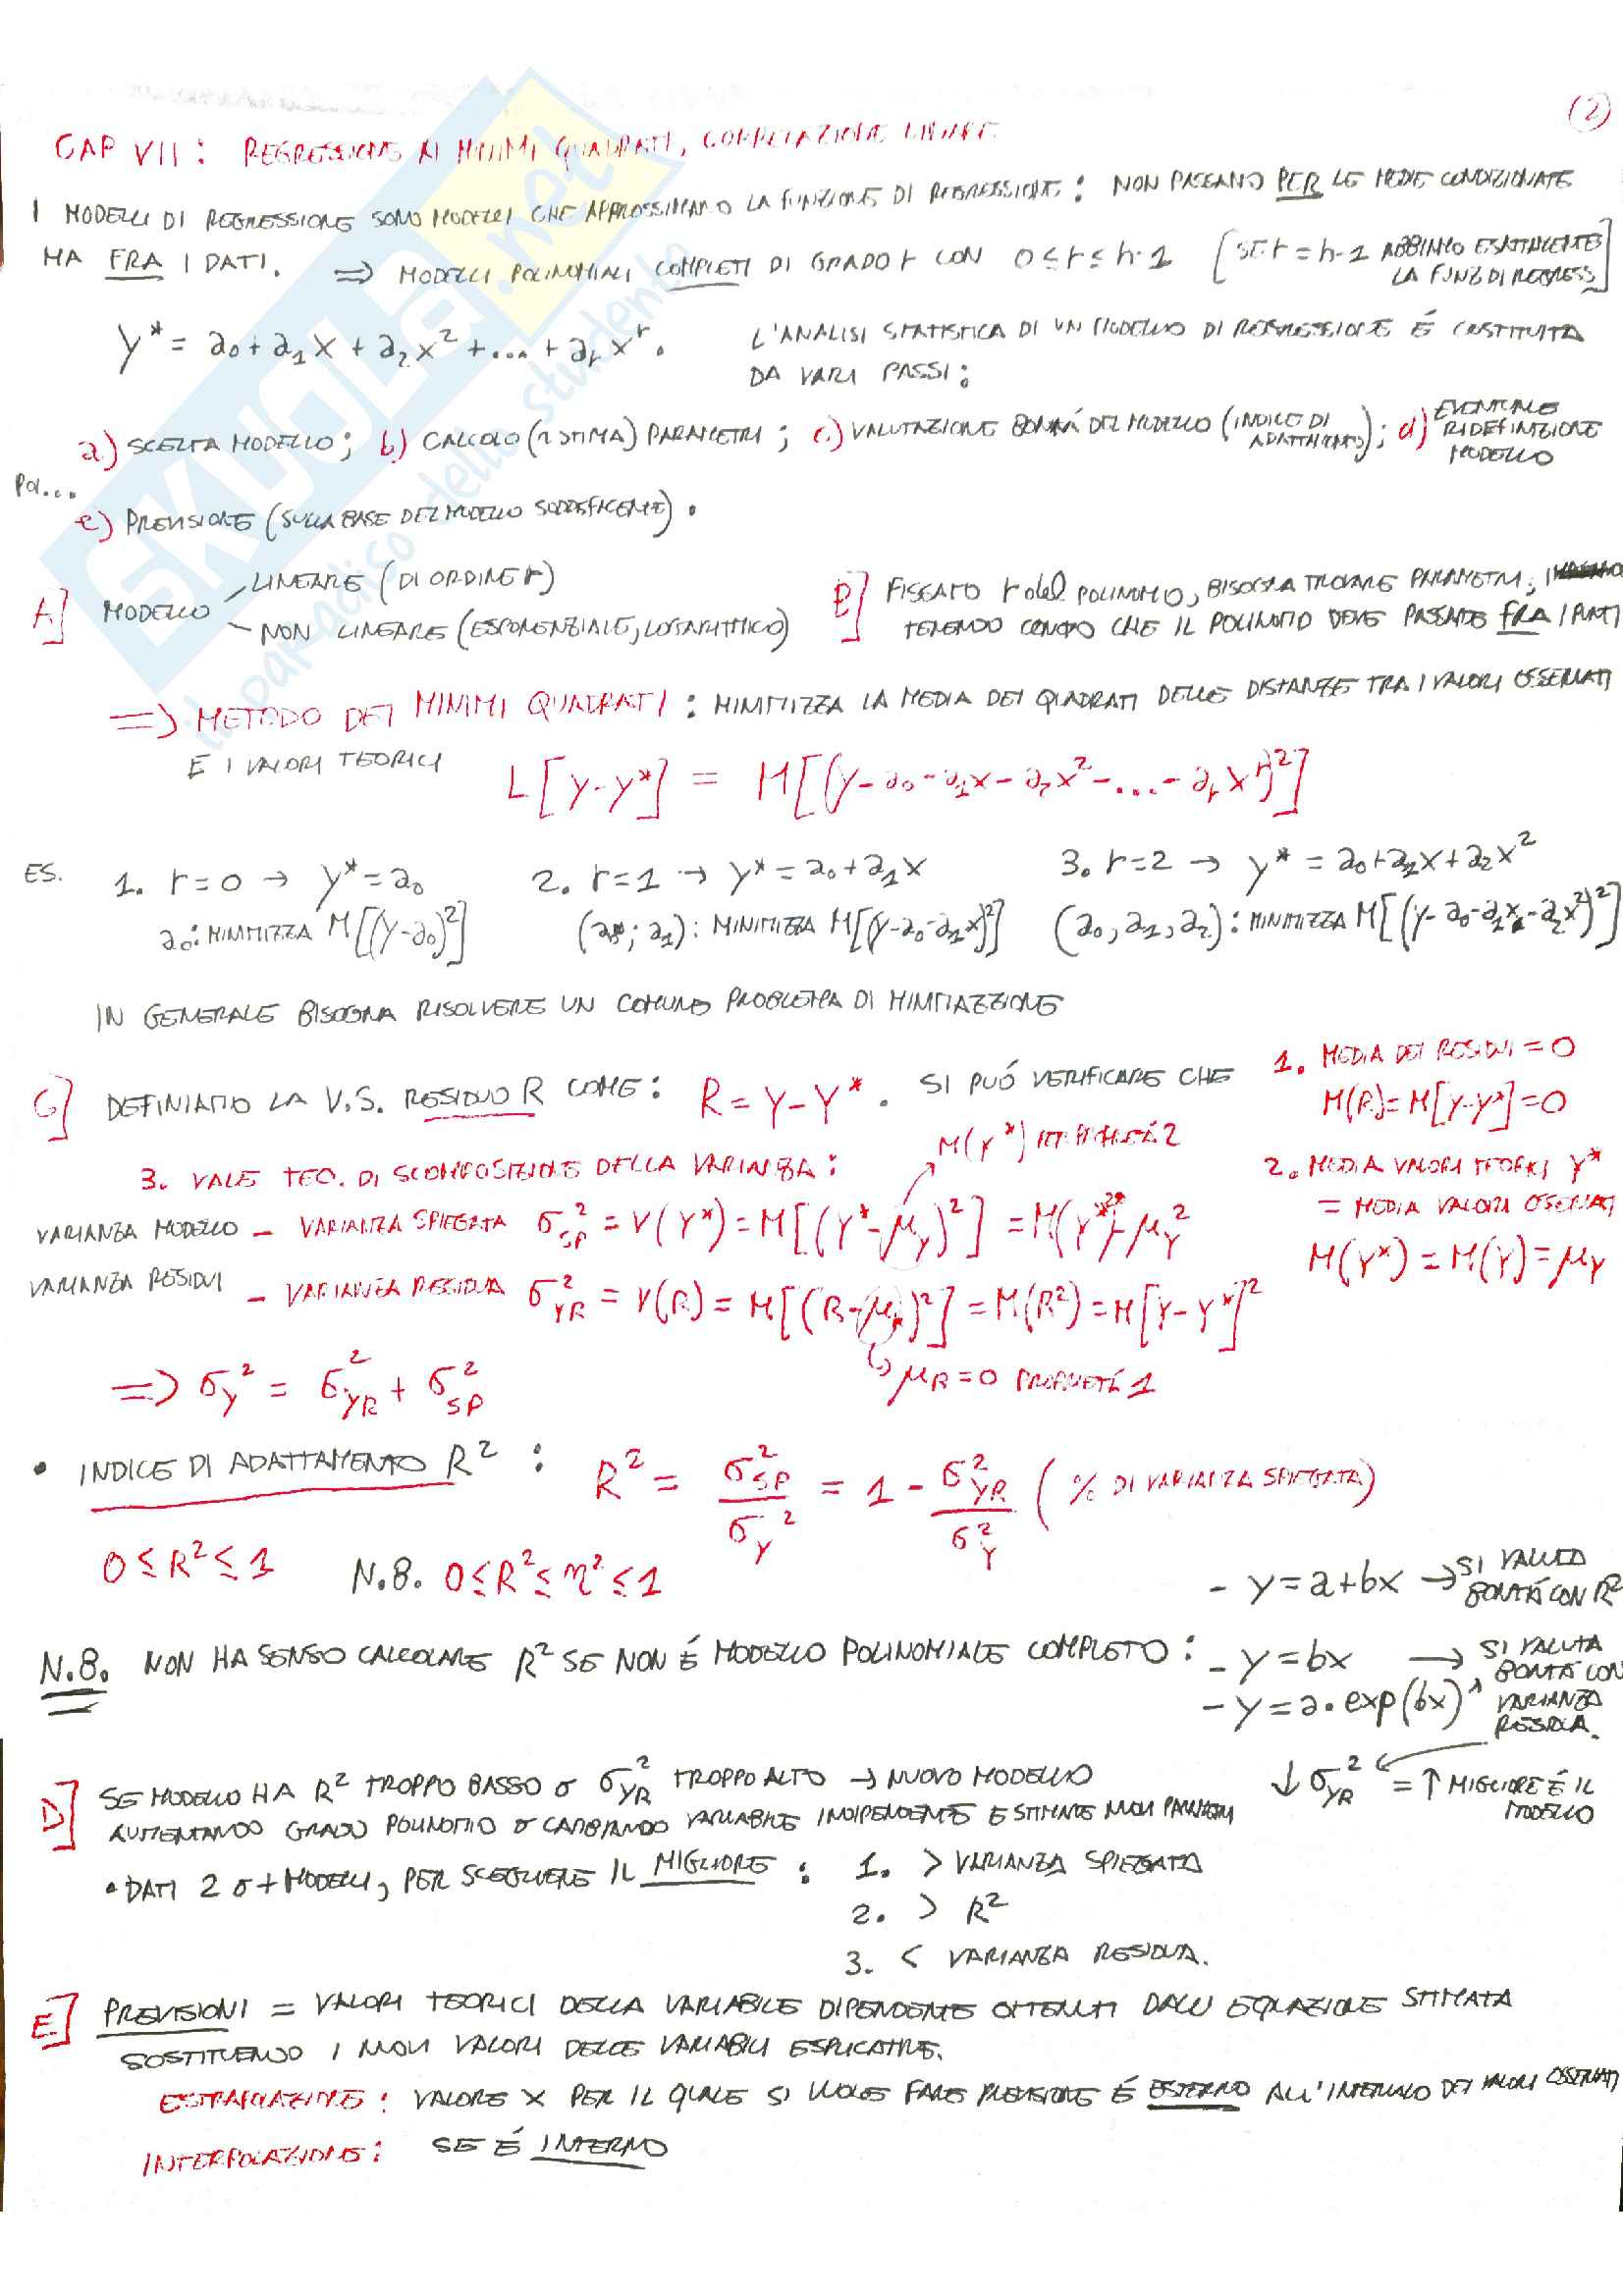 (2)
CAP VII: REGRESSIONE AI MINIMI QUADRATI, CORRELAZIONE LINEARE
I MODELLI DI REGRESSIONE SONO MODELLI CHE APPROSSIMANO LA FUNZIONE DI REGRESSIONE: NON PASSANO PER LE MEDIE CONDIZIONATE
MA FRA I DATI. => MODELLI POLINOMIALI COMPLETI DI GRADO r CON 0 ≤ r ≤ h-1 [SE r = h-1 ABBIAMO ESATTAMENTE LA FUNZ DI REGRESS]
y* = a0 + a1x + a2x² + ... + arx^r.
L'ANALISI STATISTICA DI UN MODELLO DI REGRESSIONE É COSTITUITA
DA VARI PASSI:
a) SCELTA MODELLO; b) CALCOLO (o STIMA) PARAMETRI; c) VALUTAZIONE BONTÁ DEL MODELLO (INDICE DI ADATTAMENTO); d) EVENTUALE RIDEFINIZIONE MODELLO
POI...
e) PREVISIONE (SULLA BASE DEL MODELLO SODDISFACENTE).
A] MODELLO
LINEARE (DI ORDINE r)
NON LINEARE (ESPONENZIALE, LOGARITMICO)
B] FISSATO r del POLINOMIO, BISOGNA TROVARE PARAMETRI,
TENENDO CONTO CHE IL POLINOMIO DEVE PASSARE FRA I PUNTI
=> METODO DEI MINIMI QUADRATI: MINIMIZZA LA MEDIA DEI QUADRATI DELLE DISTANZE TRA I VALORI OSSERVATI
E I VALORI TEORICI
L[y-y*] = M[(y-a0-a1x-a2x²-...-arx^r)²]
ES. 1. r=0 → y*=a0
a0: MINIMIZZA M[(y-a0)²]
2. r=1 → y*=a0+a1x
(a0; a1): MINIMIZZA M[(y-a0-a1x)²]
3. r=2 → y* = a0+a1x+a2x²
(a0, a1, a2): MINIMIZZA M[(y-a0-a1x-a2x²)²]
IN GENERALE BISOGNA RISOLVERE UN COMUNE PROBLEMA DI MINIMIZZAZIONE
C] DEFINIAMO LA V.S. RESIDUO R COME: R = Y-Y*. SI PUÓ VERIFICARE CHE
1. MEDIA DEI RESIDUI = 0
M(R) = M[Y-Y*] = 0
2. MEDIA VALORI TEORICI Y*
= MEDIA VALORI OSSERVATI
M(Y*) = M(Y) = μY
3. VALE TEO. DI SCOMPOSIZIONE DELLA VARIANZA:
M(Y*) PER PROPRIETÁ 2
VARIANZA MODELLO - VARIANZA SPIEGATA σ²SP = V(Y*) = M[(Y*-μY)²] = M(Y*²)-μY²
VARIANZA RESIDUI - VARIANZA RESIDUA σ²YR = V(R) = M[(R-μR)²] = M(R²) = M[Y-Y*]²
μR = 0 PROPRIETÁ 1
=> σY² = σ²YR + σ²SP
• INDICE DI ADATTAMENTO R²: R² = σ²SP/σY² = 1 - σ²YR/σ²Y (% DI VARIANZA SPIEGATA)
0 ≤ R² ≤ 1 N.B. 0 ≤ R² ≤ η² ≤ 1
N.B. NON HA SENSO CALCOLARE R² SE NON É MODELLO POLINOMIALE COMPLETO:
- y = a+bx → SI VALUTA BONTÁ CON R²
- y = bx → SI VALUTA BONTÁ CON VARIANZA RESIDUA.
- y = a·exp(bx)
↓ σ²YR = ↑ MIGLIORE É IL MODELLO
D] SE MODELLO HA R² TROPPO BASSO o σ²YR TROPPO ALTO → NUOVO MODELLO
AUMENTANDO GRADO POLINOMIO o CAMBIANDO VARIABILE INDIPENDENTE E STIMARE NUOVI PARAMETRI
• DATI 2 o + MODELLI, PER SCEGLIERE IL MIGLIORE: 1. > VARIANZA SPIEGATA
2. > R²
3. < VARIANZA RESIDUA.
E] PREVISIONI = VALORI TEORICI DELLA VARIABILE DIPENDENTE OTTENUTI DALL' EQUAZIONE STIMATA
SOSTITUENDO I NUOVI VALORI DELLE VARIABILI ESPLICATIVE.
ESTRAPOLAZIONE: VALORE X PER IL QUALE SI VUOLE FARE PREVISIONE É ESTERNO ALL'INTERVALLO DEI VALORI OSSERVATI
INTERPOLAZIONE: SE É INTERNO
SKUOLA.net
il paradiso dello studente